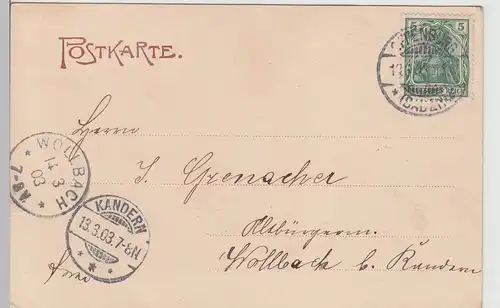 POSTKARTE.
5
DEUTSCHES REICH
(BADEN)
Herrn
J. Grenacher
Altbürgerm.
Wollbach b. Kandern
WOLLBACH
14 3
03
7-8V
KANDERN
13.3.03.7-8N.